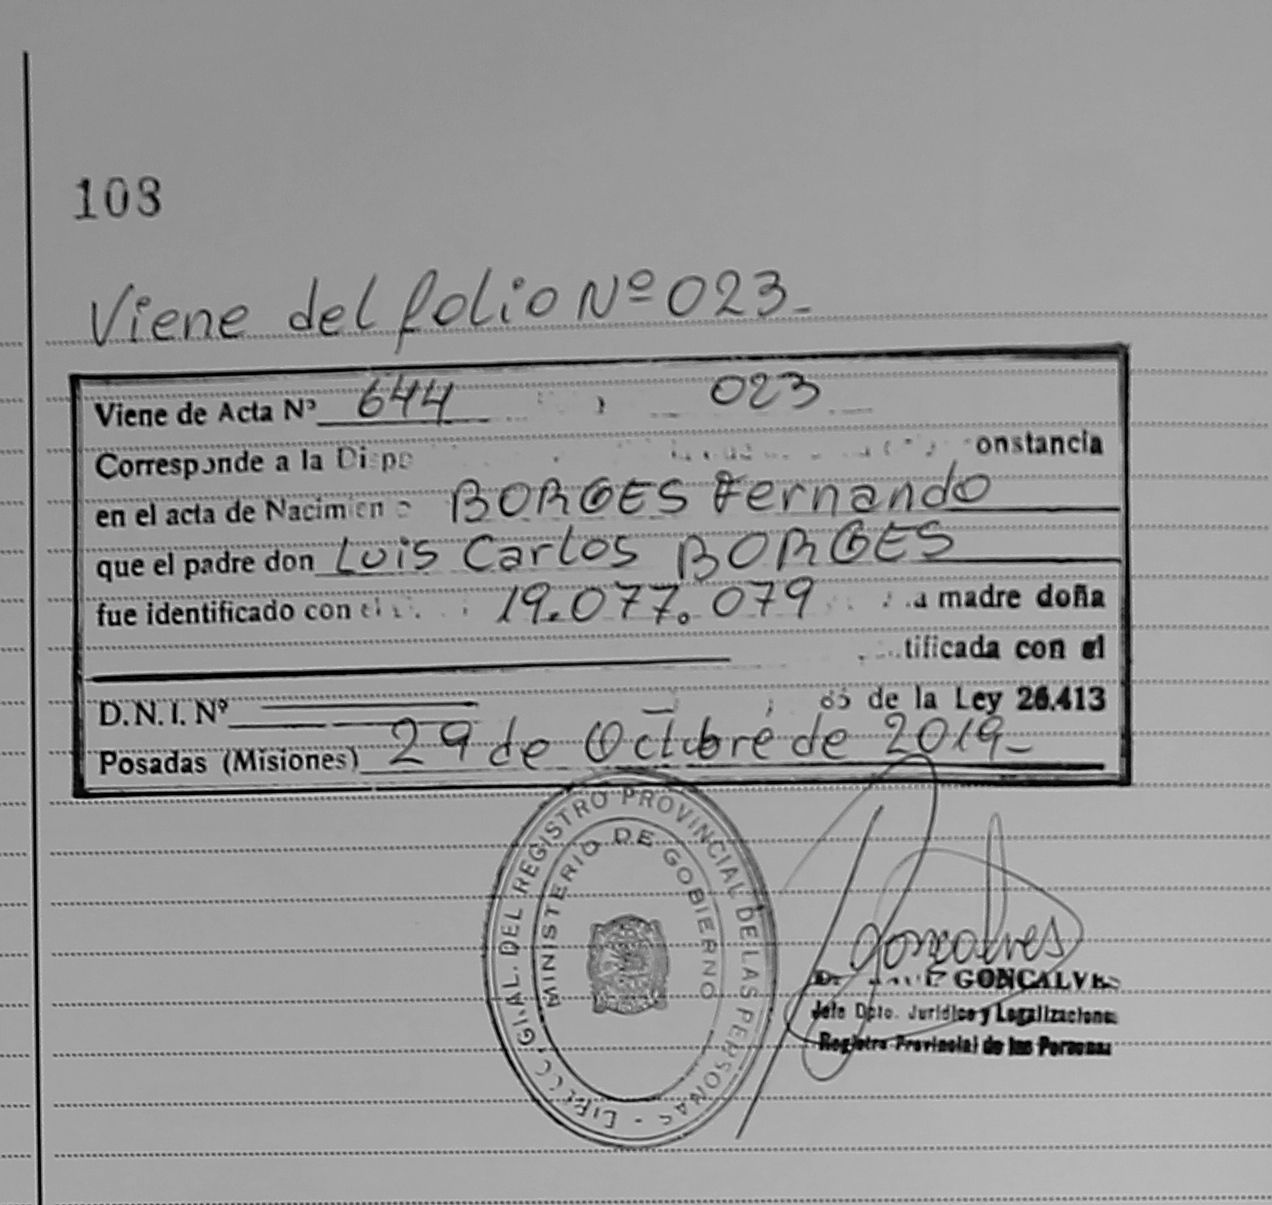 108
Viene del folio Nº 023_
Viene de Acta Nº 644 023
Corresponde a la Dispo onstancia
en el acta de Nacimien BORGES Fernando
que el padre don Luis Carlos BORGES
fue identificado con el 19.077.079 a madre doña
tificada con el
D.N.I. Nº de la Ley 26.413
Posadas (Misiones) 29 de Octubre de 2019_
GRAL. DEL REGISTRO PROVINCIAL DE LAS PERSONAS -
MINISTERIO DE GOBIERNO
Goncalves
GONÇALVES
Jefe Dpto. Jurídico y Legalizaciones
Registro Provincial de las Personas